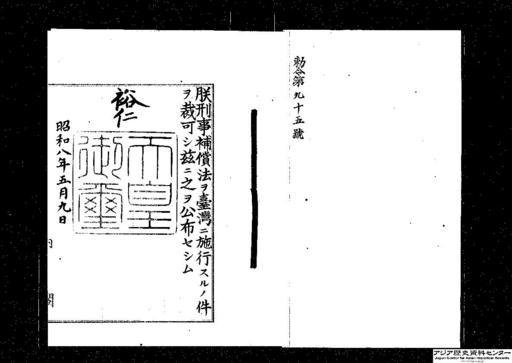 勅令第九十五號
朕刑事補償法ヲ臺灣ニ施行スルノ件
ヲ裁可シ茲ニ之ヲ公布セシム
裕仁
天皇
御璽
昭和八年五月九日
内閣
アジア歴史資料センター
Japan Center for Asian Historical Records